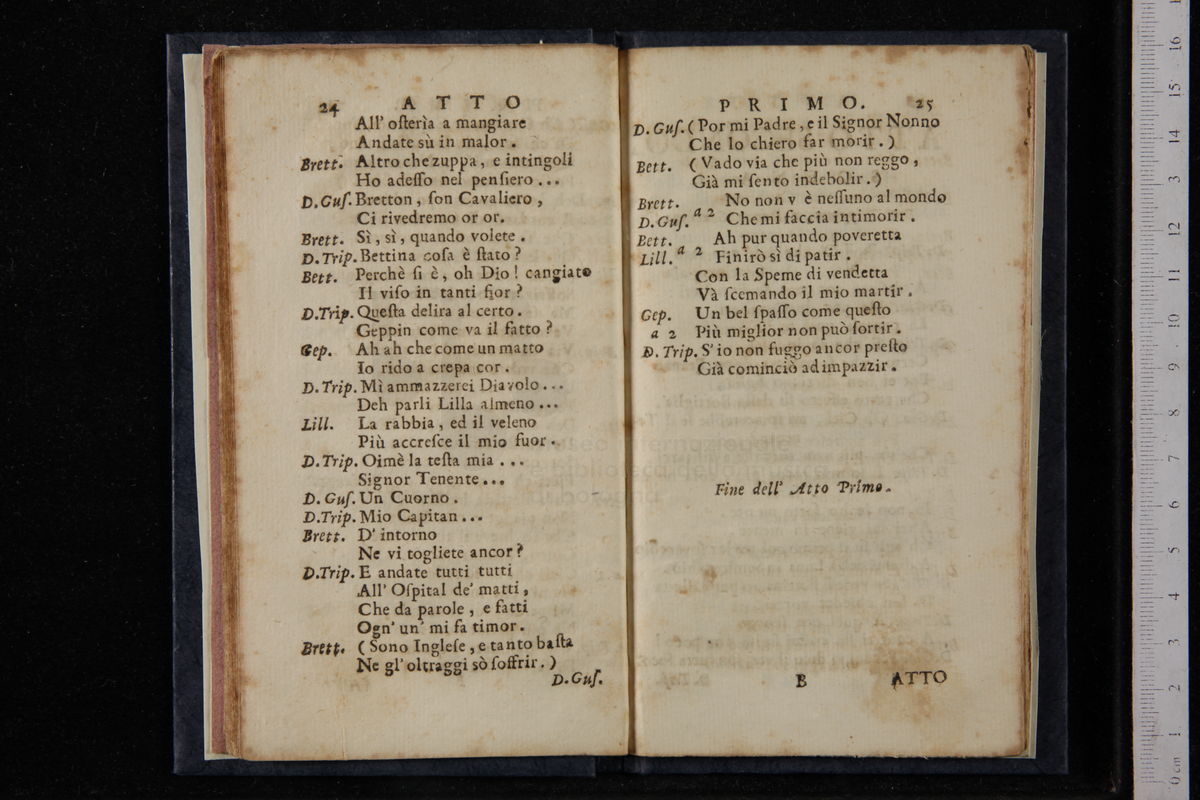 24 ATTO
All' osterìa a mangiare
Andate sù in malor.
Brett. Altro che zuppa, e intingoli
Ho adeſſo nel penſiero ...
D. Guſ. Bretton, ſon Cavaliero,
Ci rivedremo or or.
Brett. Sì, sì, quando volete.
D. Trip. Bettina coſa è ſtato?
Bett. Perchè ſi è, oh Dio! cangiato
Il viſo in tanti fior?
D. Trip. Queſta delira al certo.
Geppin come va il fatto?
Gep. Ah ah che come un matto
Io rido a crepa cor.
D. Trip. Mì ammazzerei Diavolo ...
Deh parli Lilla almeno ...
Lill. La rabbia, ed il veleno
Più accreſce il mio fuor.
D. Trip. Oimè la teſta mia ...
Signor Tenente ...
D. Guſ. Un Cuorno.
D. Trip. Mio Capitan ...
Brett. D' intorno
Ne vi togliete ancor?
D. Trip. E andate tutti tutti
All' Oſpital de' matti,
Che da parole, e fatti
Ogn' un' mi fa timor.
Brett. (Sono Ingleſe, e tanto baſta
Ne gl' oltraggi sò ſoffrir.)
D. Guſ.
PRIMO. 25
D. Guſ. (Por mi Padre, e il Signor Nonno
Che lo chiero far morir.)
Bett. (Vado via che più non reggo,
Già mi ſento indebolir.)
Brett. No non v è neſſuno al mondo
D. Guſ. a 2 Che mi faccia intimorir.
Bett. Ah pur quando poveretta
Lill. a 2 Finirò sì di patir.
Con la Speme di vendetta
Và ſcemando il mio martir.
Gep. Un bel ſpaſſo come queſto
a 2 Più miglior non può ſortir.
D. Trip. S' io non fuggo ancor preſto
Già cominciò ad impazzir.
Fine dell' Atto Primo.
B ATTO
museo internazionale
e biblioteca della musica
di bologna
0 cm 1 2 3 4 5 6 7 8 9 10 11 12 13 14 15 16